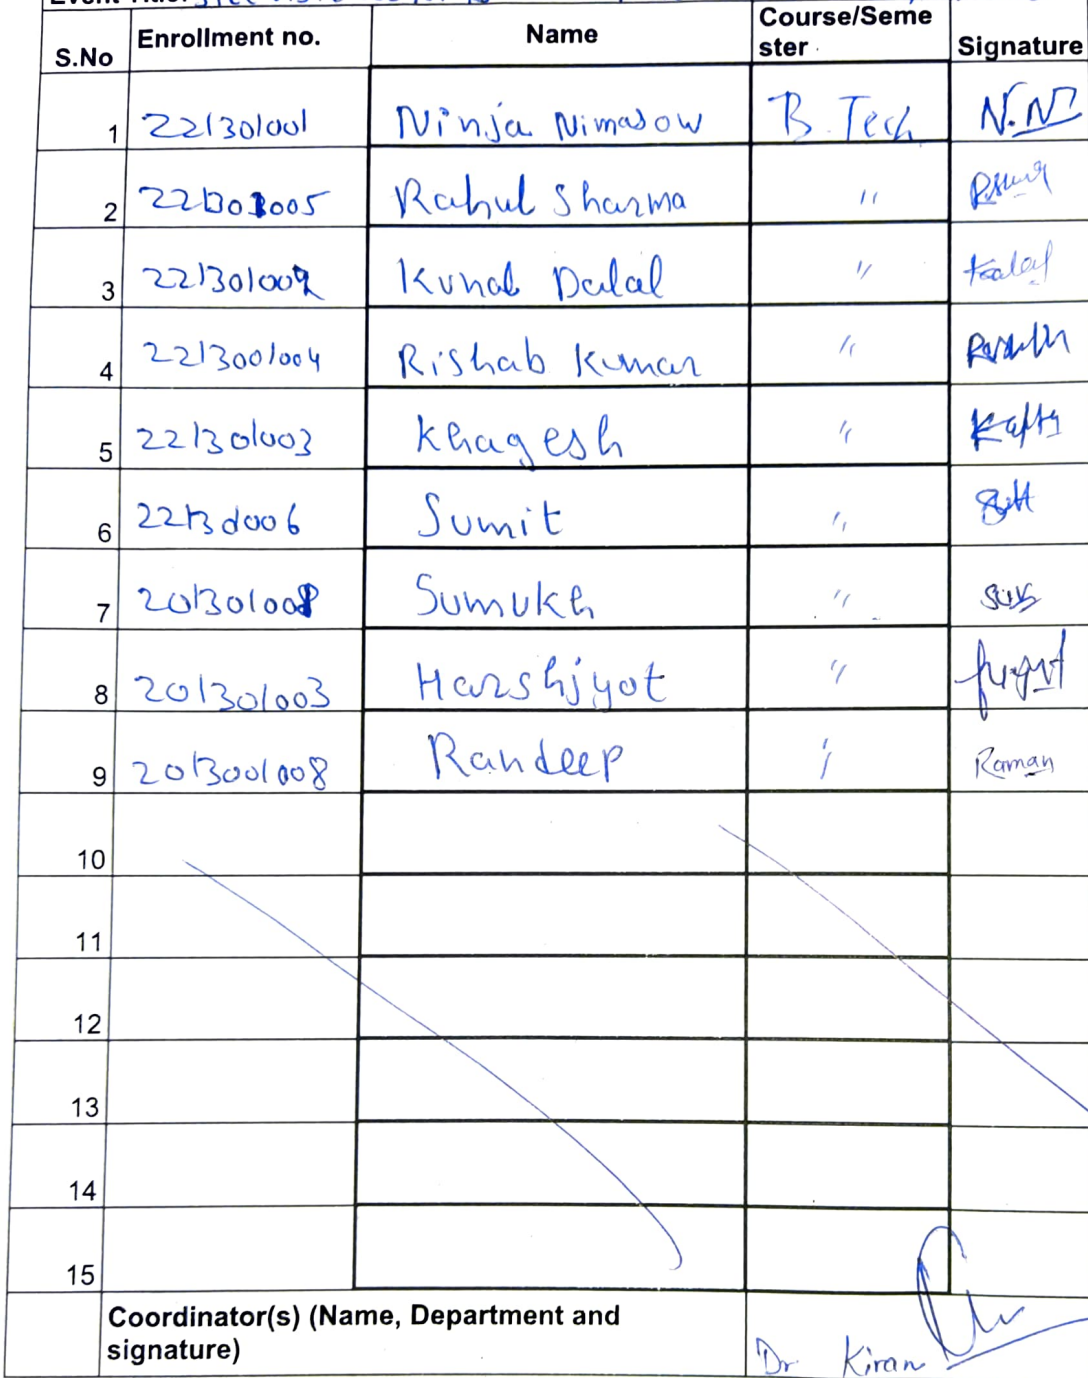 S.No Enrollment no. Name Course/Seme
ster Signature
1 221301001 Ninja Nimasow B.Tech N.N
2 221301005 Rahul Sharma "
3 221301002 Kunal Dalal "
4 2213001004 Rishab Kumar "
5 221301003 Khagesh "
6 221301006 Sumit "
7 201301008 Sumukh "
8 201301003 Harshjyot "
9 2013001008 Randeep " Raman
10
11
12
13
14
15
Coordinator(s) (Name, Department and
signature)
Dr Kiran